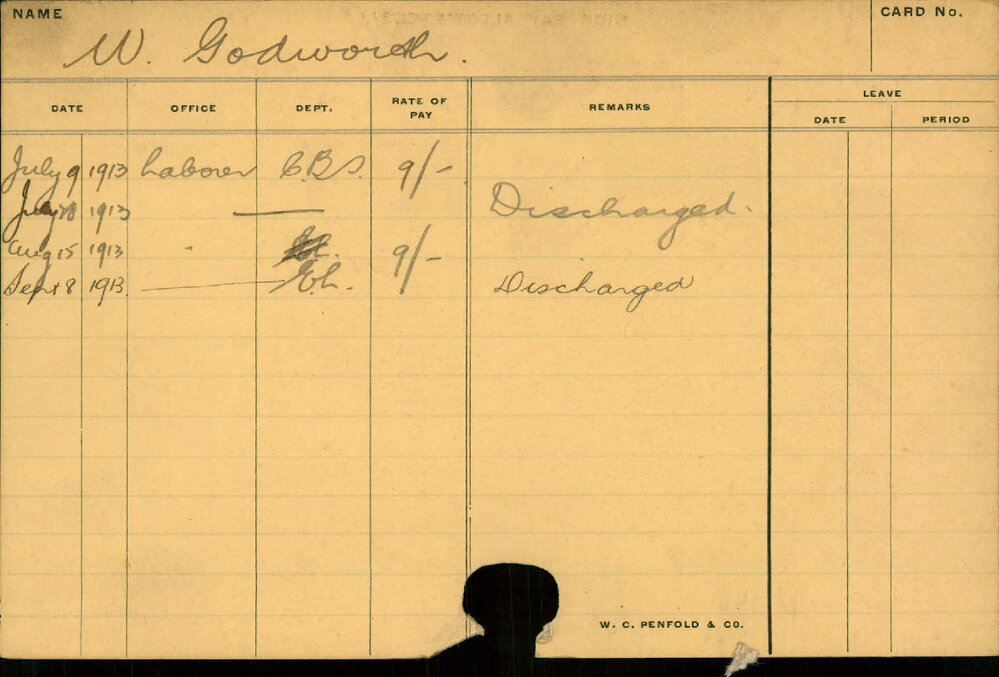 NAME
CARD No.
W. Godworth.
DATE OFFICE DEPT. RATE OF PAY REMARKS LEAVE
DATE PERIOD
July 9 1913 Laborer C.B.S. 9/-
July 28 1913 — Discharged.
Aug 15 1913 " 9/-
Sept 8 1913. — E.L. Discharged
W. C. PENFOLD & CO.